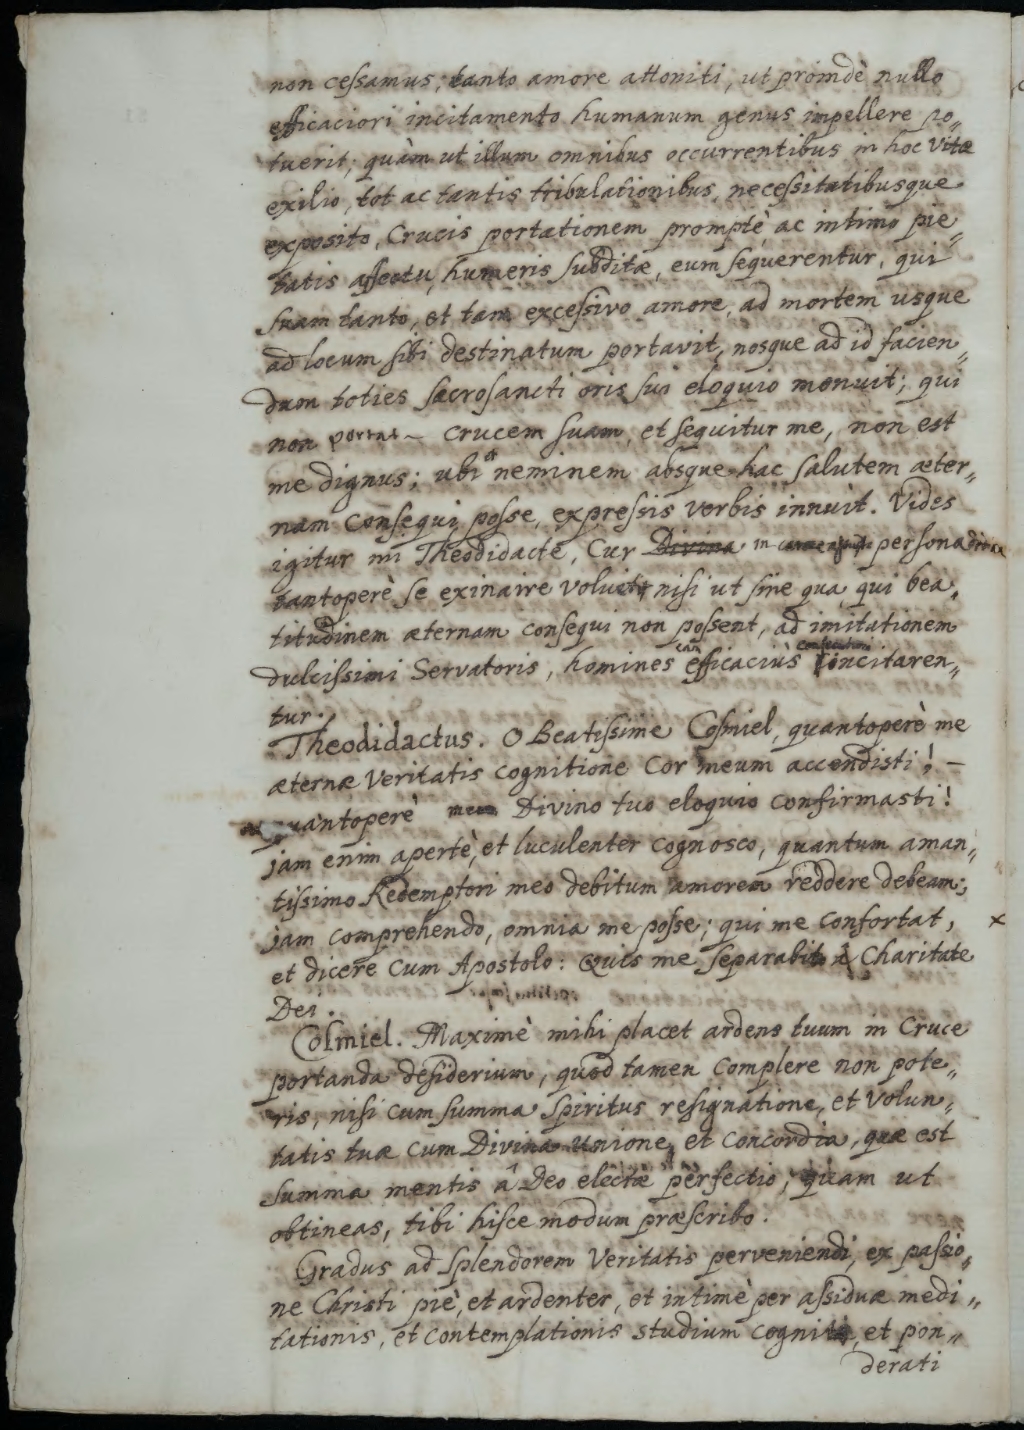 non cessamus; tanto amore attoniti, ut proindè nullo
efficaciori incitamento humanum genus impellere po„
tuerit, quàm ut illum omnibus occurrentibus in hoc Vitæ
exilio, tot ac tantis tribulationibus, necessitatibusque
exposito, Crucis portationem promptè ac intimo pie„
tatis affectu, humeris subditæ, eum sequerentur, qui
suam tanto, et tam excessivo amore, ad mortem usque
ad locum sibi destinatum portavit, nosque ad id facien„
dum toties sacrosancti oris sui eloquio monuit; qui
non portat crucem suam, et sequitur me, non est
me dignus; ubi et neminem absque hac salutem æter„
nam consequi posse, expressis verbis innuit. Vides
igitur mi Theodidacte, Cur Divina in persona divina
tantoperè se exinaire voluit nisi ut sine qua qui bea„
titudinem æternam consequi non possent, ad imitationem
dulcissimi Servatoris, homines eam efficaciùs consecuturi incitaren„
tur.
Theodidactus. O Beatissime Cosmiel, quantoperè me
æternæ Veritatis cognitione Cor meum accendisti! —
quantoperè Divino tuo eloquio confirmasti!
jam enim apertè, et luculenter cognosco, quantum aman„
tissimo Redemptori meo debitum amorem reddere debeam;
jam comprehendo, omnia me posse; qui me confortat, x
et dicere cum Apostolo: Quis me separabit à Charitate
Dei.
Cosmiel. Maximè mihi placet ardens tuum in Cruce
portanda desiderium, quod tamen complere non pote„
ris, nisi cum summa Spiritus resignatione, et Volun„
tatis tuæ cum Divina Unione, et concordia, quæ est
summa mentis â Deo electæ perfectio; quam ut
obtineas, tibi hisce modum præscribo.
Gradus ad Splendorem Veritatis perveniendi, ex passio„
ne Christi piè, et ardenter, et intimè per assiduæ medi„
tationis, et contemplationis studium cogniti, et pon„
derati